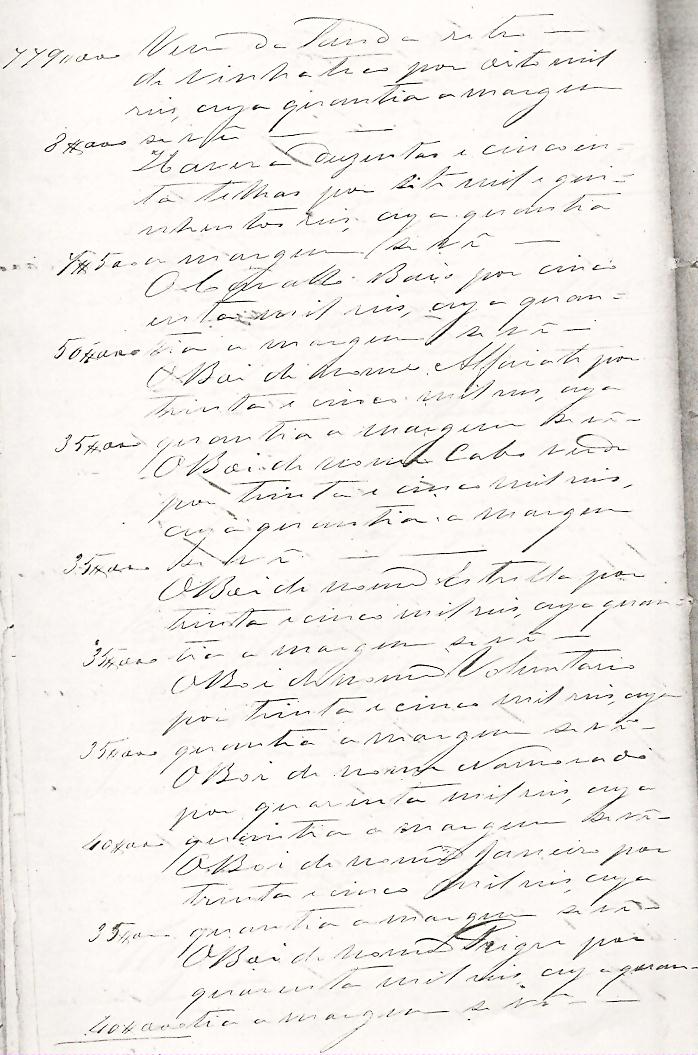 779#000 Vem da Lauda retro —
de vinhatico por oito mil
reis, cuja quantia a margem
8#000 se vê — —
Haver a duzentas e cincoen-
ta telhas por sete mil e qui-
nhentos reis, cuja quantia
7#500 a margem se vê —
O Cavallo Baio por cinco
enta mil reis, cuja quan-
50#000 tia a margem se vê —
O Boi de nome Alfaiate por
trinta e cinco mil reis, cuja
35#000 quantia a margem se vê —
O Boi de nome Cabo verde
por trinta e cinco mil reis,
cuja quantia a margem
35#000 se vê — —
O Boi de nome Estrella por
trinta e cinco mil reis, cuja quan-
35#000 tia a margem se vê —
O Boi de nome Voluntario
por trinta e cinco mil reis, cuja
35#000 quantia a margem se vê —
O Boi de nome Namorado
por quarenta mil reis, cuja
40#000 quantia a margem se vê —
O Boi de nome Janeiro por
trinta e cinco mil reis, cuja
35#000 quantia a margem se vê —
O Boi de nome por
quarenta mil reis, cuja quan-
40#000 tia a margem se vê — —